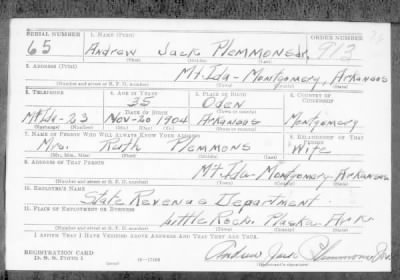 SERIAL NUMBER 1. NAME (Print) ORDER NUMBER
65 Andrew Jack Plemmons Jr. 913
(First) (Middle) (Last)
2. ADDRESS (Print)
Mt. Ida - Montgomery, Arkansas
(Number and street or R. F. D. number) (Town) (County) (State)
3. TELEPHONE 4. AGE IN YEARS 5. PLACE OF BIRTH 6. COUNTRY OF CITIZENSHIP
35 Oden
DATE OF BIRTH (Town or county)
Mt. Ida - 23 Nov - 20 1904 Arkansas Montgomery
(Exchange) (Number) (Mo.) (Day) (Yr.) (State or country)
7. NAME OF PERSON WHO WILL ALWAYS KNOW YOUR ADDRESS 8. RELATIONSHIP OF THAT PERSON
Mrs. Ruth Plemmons Wife
(Mr., Mrs., Miss) (First) (Middle) (Last)
9. ADDRESS OF THAT PERSON
Mt. Ida - Montgomery - Arkansas
(Number and street or R. F. D. number) (Town) (County) (State)
10. EMPLOYER'S NAME
State Revenue Department
11. PLACE OF EMPLOYMENT OR BUSINESS
Little Rock. Ark.
(Number and street or R. F. D. number) (Town) (County) (State)
I AFFIRM THAT I HAVE VERIFIED ABOVE ANSWERS AND THAT THEY ARE TRUE.
REGISTRATION CARD Andrew Jack Plemmons Jr.
D. S. S. FORM 1 16-17105 (Registrant's signature)